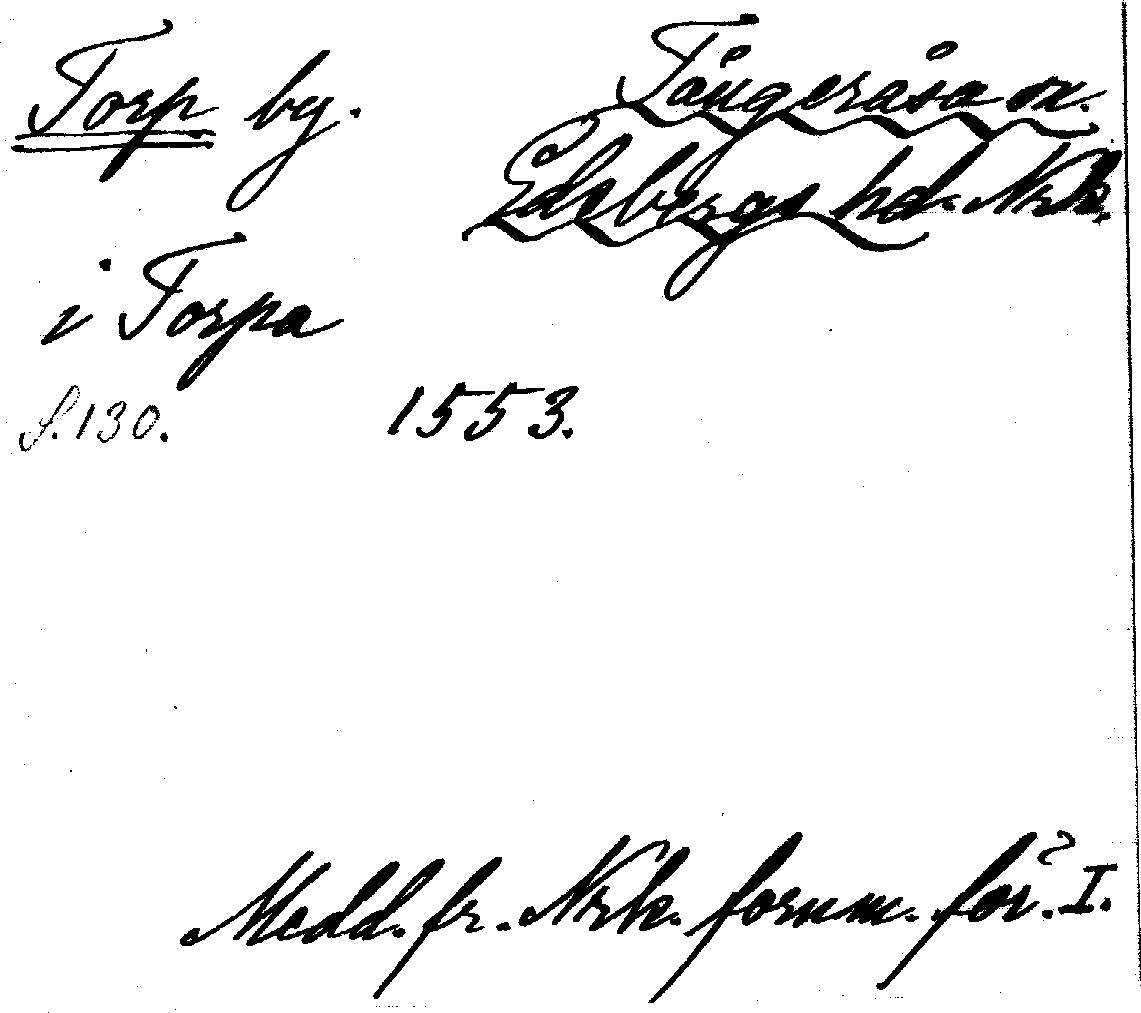 Torp by.
Tångeråsa sn.
Edsbergs hd. Nrk.
i Torpa
s. 130. 1553.
Medd. fr. Nrk. fornm. för. I.